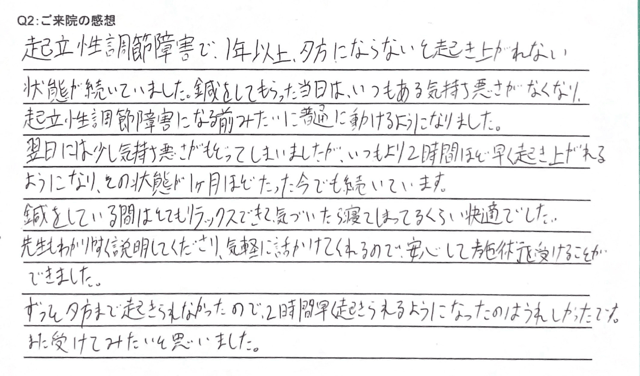 Q2:ご来院の感想
起立性調節障害で、1年以上、夕方にならないと起き上がれない
状態が続いていました。鍼をしてもらった当日は、いつもある気持ち悪さがなくなり、
起立性調節障害になる前みたいに普通に動けるようになりました。
翌日には少し気持ち悪さがもどってしまいましたが、いつもより2時間ほど早く起き上がれる
ようになり、その状態が1ヶ月ほどたった今でも続いています。
鍼をしている間はとてもリラックスできて、気づいたら寝てしまってるくらい快適でした。
先生もわかりやすく説明してくださり、気軽に話かけてくれるので、安心して施術を受けることが
できました。
ずっと夕方まで起きられなかったので、2時間早く起きられるようになったのはうれしかったです。
また受けてみたいと思いました。